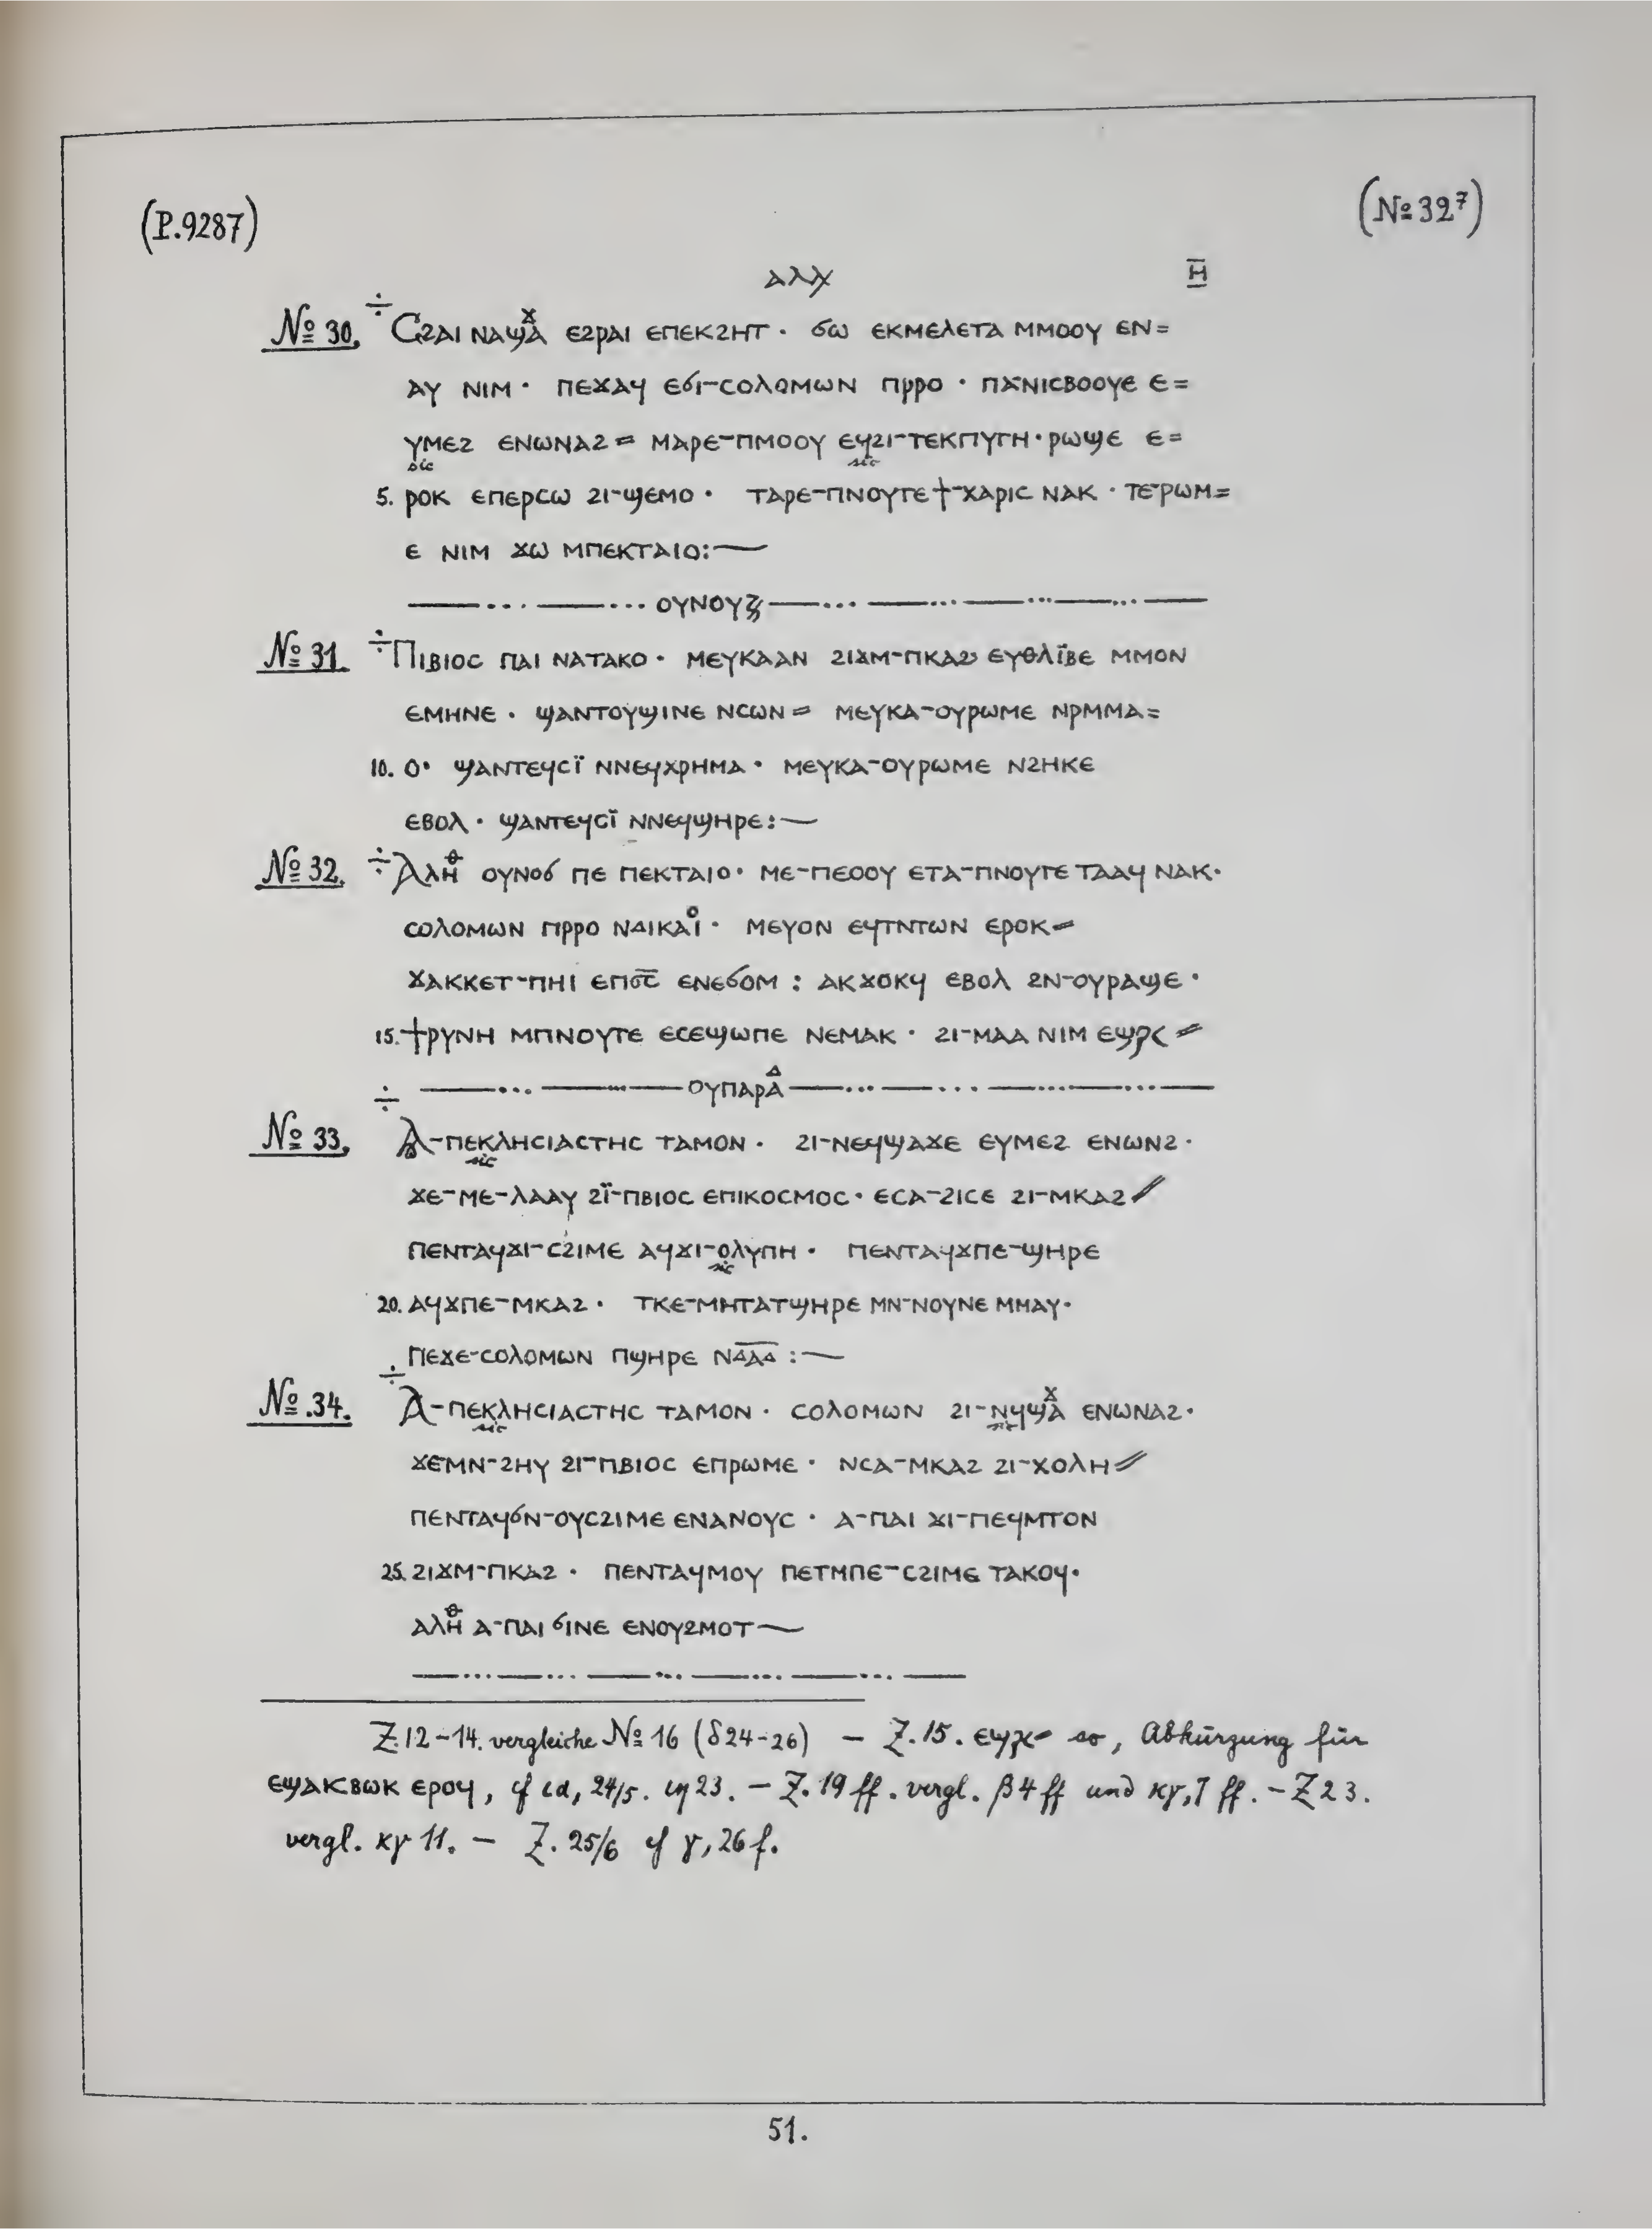 (P.9287) (№ 32⁷)
ⲁⲗⲭ ⲏ̅
№ 30. ÷ Ⲥϩⲁⲓ ⲛⲁϣⲁϫ ⲉϩⲣⲁⲓ ⲉⲡⲉⲕϩⲏⲧ · ϭⲱ ⲉⲕⲙⲉⲗⲉⲧⲁ ⲙⲙⲟⲟⲩ ⲉⲛ=
ⲁⲩ ⲛⲓⲙ · ⲡⲉϫⲁϥ ⲉϭⲓ-ⲥⲟⲗⲟⲙⲱⲛ ⲡⲣⲣⲟ · ⲡⲁⲛⲓⲥⲃⲟⲟⲩⲉ ⲉ=
ⲩⲙⲉϩ ⲉⲛⲱⲛⲁϩ = ⲙⲁⲣⲉ-ⲡⲙⲟⲟⲩ ⲉϥϩⲓ-ⲧⲉⲕⲡⲩⲅⲏ · ⲣⲱϣⲉ ⲉ=
sic sic
5. ⲣⲟⲕ ⲉⲡⲉⲣⲥⲱ ϩⲓ-ϣⲉⲙⲟ · ⲧⲁⲣⲉ-ⲡⲛⲟⲩⲧⲉ ϯ-ⲭⲁⲣⲓⲥ ⲛⲁⲕ · ⲧⲉ-ⲣⲱⲙ=
ⲉ ⲛⲓⲙ ϫⲱ ⲙⲡⲉⲕⲧⲁⲓⲟ:—
———··· ———··· ⲟⲩⲛⲟⲩⲝ̄ ———··· ———···———···———···———
№ 31. ÷ Ⲡⲓⲃⲓⲟⲥ ⲡⲁⲓ ⲛⲁⲧⲁⲕⲟ · ⲙⲉⲩⲕⲁⲁⲛ ϩⲓϫⲙ-ⲡⲕⲁϩ ⲉⲩⲑⲗⲓ̈ⲃⲉ ⲙⲙⲟⲛ
ⲉⲙⲏⲛⲉ · ϣⲁⲛⲧⲟⲩϣⲓⲛⲉ ⲛⲥⲱⲛ = ⲙⲉⲩⲕⲁ-ⲟⲩⲣⲱⲙⲉ ⲛⲣⲙⲙⲁ=
10. ⲟ · ϣⲁⲛⲧⲉϥⲥⲓ̈ ⲛⲛⲉϥⲭⲣⲏⲙⲁ · ⲙⲉⲩⲕⲁ-ⲟⲩⲣⲱⲙⲉ ⲛϩⲏⲕⲉ
ⲉⲃⲟⲗ · ϣⲁⲛⲧⲉϥⲥⲓ̈ ⲛⲛⲉϥϣⲏⲣⲉ:—
№ 32. ÷ Ⲁⲗⲏⲑ ⲟⲩⲛⲟϭ ⲡⲉ ⲡⲉⲕⲧⲁⲓⲟ · ⲙⲉ-ⲡⲉⲟⲟⲩ ⲉⲧⲁ-ⲡⲛⲟⲩⲧⲉ ⲧⲁⲁϥ ⲛⲁⲕ ·
ⲥⲟⲗⲟⲙⲱⲛ ⲡⲣⲣⲟ ⲛⲇⲓⲕⲁⲓⲟ · ⲙⲉⲩⲟⲛ ⲉϥⲧⲛⲧⲱⲛ ⲉⲣⲟⲕ =
ϫⲁⲕⲕⲉⲧ-ⲡⲏⲓ ⲉⲡⲟ̅ⲥ̅ ⲉⲛⲉϭⲟⲙ : ⲁⲕϫⲟⲕϥ ⲉⲃⲟⲗ ϩⲛ-ⲟⲩⲣⲁϣⲉ ·
15. ϯⲣⲩⲛⲏ ⲙⲡⲛⲟⲩⲧⲉ ⲉⲥⲉϣⲱⲡⲉ ⲛⲉⲙⲁⲕ · ϩⲓ-ⲙⲁⲁ ⲛⲓⲙ ⲉϣⲣⲥ =
÷ ———··· ———···——— ⲟⲩⲡⲁⲣⲁⲇ ———··· ———··· ———···———···———
№ 33. Ⲁ-ⲡⲉⲕⲗⲏⲥⲓⲁⲥⲧⲏⲥ ⲧⲁⲙⲟⲛ · ϩⲓ-ⲛⲉϥϣⲁϫⲉ ⲉⲩⲙⲉϩ ⲉⲛⲱⲛϩ ·
sic
ϫⲉ-ⲙⲉ-ⲗⲁⲁⲩ ϩⲓ̈-ⲡⲃⲓⲟⲥ ⲉⲡⲓⲕⲟⲥⲙⲟⲥ · ⲉⲥⲁ-ϩⲓⲥⲉ ϩⲓ-ⲙⲕⲁϩ //
ⲡⲉⲛⲧⲁϥϫⲓ-ⲥϩⲓⲙⲉ ⲁϥϫⲓ-ⲟⲗⲩⲡⲏ · ⲡⲉⲛⲧⲁϥϫⲡⲉ-ϣⲏⲣⲉ
sic
20. ⲁϥϫⲡⲉ-ⲙⲕⲁϩ · ⲧⲕⲉ-ⲙⲏⲧⲁⲧϣⲏⲣⲉ ⲙⲛ-ⲛⲟⲩⲛⲉ ⲙⲙⲁⲩ ·
ⲡⲉϫⲉ-ⲥⲟⲗⲟⲙⲱⲛ ⲡϣⲏⲣⲉ ⲛⲇ̅ⲁ̅ⲇ̅ :—
№ 34. ÷ Ⲁ-ⲡⲉⲕⲗⲏⲥⲓⲁⲥⲧⲏⲥ ⲧⲁⲙⲟⲛ · ⲥⲟⲗⲟⲙⲱⲛ ϩⲓ-ⲛϥϣⲁϫ ⲉⲛⲱⲛⲁϩ ·
sic sic
ϫⲉⲙⲛ-ϩⲏⲩ ϩⲓ-ⲡⲃⲓⲟⲥ ⲉⲡⲣⲱⲙⲉ · ⲛⲥⲁ-ⲙⲕⲁϩ ϩⲓ-ⲭⲟⲗⲏ //
ⲡⲉⲛⲧⲁϥϭⲛ-ⲟⲩⲥϩⲓⲙⲉ ⲉⲛⲁⲛⲟⲩⲥ · ⲁ-ⲡⲁⲓ ϫⲓ-ⲡⲉϥⲙⲧⲟⲛ
25. ϩⲓϫⲙ-ⲡⲕⲁϩ · ⲡⲉⲛⲧⲁϥⲙⲟⲩ ⲡⲉⲧⲙⲡⲉ-ⲥϩⲓⲙⲉ ⲧⲁⲕⲟϥ ·
ⲁⲗⲏⲑ ⲁ-ⲡⲁⲓ ϭⲓⲛⲉ ⲉⲛⲟⲩϩⲙⲟⲧ —
———··· ———··· ———···———···———···———
Z.12–14. vergleiche № 16 (δ24-26) — Z.15. ⲉϣⲣⲥ= so, Abkürzung für
ⲉϣⲁⲕⲃⲱⲕ ⲉⲣⲟϥ, cf ια, 24/5. ιη 23. – Z. 19 ff. vergl. β 4 ff und κγ, 7 ff. – Z 23.
vergl. κγ 11. — Z. 25/6 cf γ, 26 f.
51.